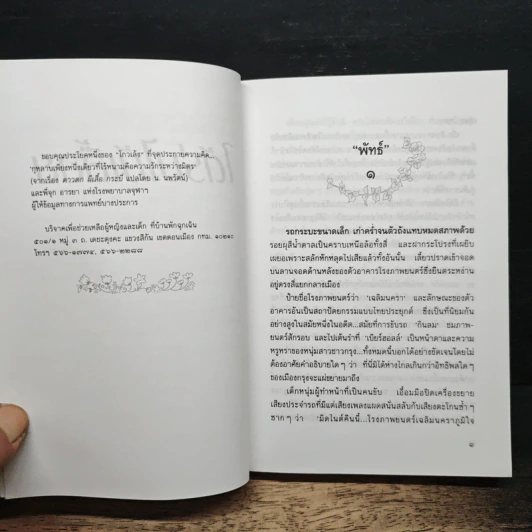 ขอบคุณประโยคหนึ่งของ "โกวเล้ง" ที่จุดประกายความคิด...
'กุหลาบเพียงหนึ่งเดียวที่ไร้หนามคือความรักระหว่างมิตร'
(จากเรื่อง ดาวตก ผีเสื้อ กระบี่ แปลโดย น. นพรัตน์)
และพี่จุก อารยา แห่งโรงพยาบาลจุฬาฯ
ผู้ให้ข้อมูลทางการแพทย์บางประการ
บริจาคเพื่อช่วยเหลือผู้หญิงและเด็ก ที่บ้านพักฉุกเฉิน
๕๐๑/๑ หมู่ ๓ ถ. เดชะตุงคะ แขวงสีกัน เขตดอนเมือง กทม. ๑๐๒๑๐
โทรฯ ๕๖๖-๑๗๗๔, ๕๖๖-๒๒๘๘
"พัทธ์"
๑
รถกระบะขนาดเล็ก เก่าคร่ำจนตัวถังแทบหมดสภาพด้วย
รอยผุสีน้ำตาลเป็นคราบเหนือล้อทั้งสี่ และฝากระโปรงที่เผยิบ
เผยอเพราะสลักพักหลุดไปเสียแล้วทั้งอันนั้น เลี้ยวปราดเข้าจอด
บนลานจอดด้านหลังของตัวอาคารโรงภาพยนตร์ซึ่งยืนตระหง่าน
อยู่ตรงสี่แยกกลางเมือง
ป้ายชื่อโรงภาพยนตร์ว่า 'เฉลิมนครา' และลักษณะของตัว
อาคารอันเป็นสถาปัตยกรรมแบบไทยประยุกต์ ซึ่งเป็นที่นิยมกัน
อย่างสูงในสมัยหนึ่งในอดีต...สมัยที่การขับรถ 'กินลม' ชมภาพ-
ยนตร์สักรอบ และไปเต้นรำที่ 'เบียร์ฮอลล์' เป็นหน้าตาและความ
หรูหราของหนุ่มสาวชาวกรุง...ทั้งหมดนี้บอกได้อย่างชัดเจนโดยไม่
ต้องอาศัยคำอธิบายใดๆ ว่า ที่นี่มิได้ห่างไกลเกินกว่าอิทธิพลใดๆ
ของเมืองกรุงจะแผ่ขยายมาถึง
เด็กหนุ่มผู้ทำหน้าที่เป็นคนขับ เอื้อมมือปิดเครื่องขยาย
เสียงประจำรถที่มีแต่เสียงเพลงแผดสนั่นสลับกับเสียงตะโกนซ้ำๆ
ซากๆ ว่า 'มิดไนต์คืนนี้...โรงภาพยนตร์เฉลิมนคราภูมิใจ
๑